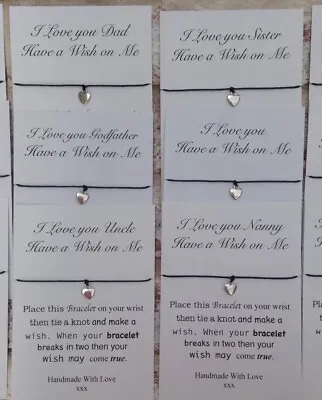 I Love you Dad
Have a Wish on Me
I Love you Sister
Have a Wish on Me
I Love you Godfather
Have a Wish on Me
I Love you
Have a Wish on Me
I Love you Uncle
Have a Wish on Me
Place this Bracelet on your wrist
then tie a knot and make a
wish. When your bracelet
breaks in two then your
wish may come true.
Handmade With Love
xxx
I Love you Nanny
Have a Wish on Me
Place this Bracelet on your wrist
then tie a knot and make a
wish. When your bracelet
breaks in two then your
wish may come true.
Handmade With Love
xxx